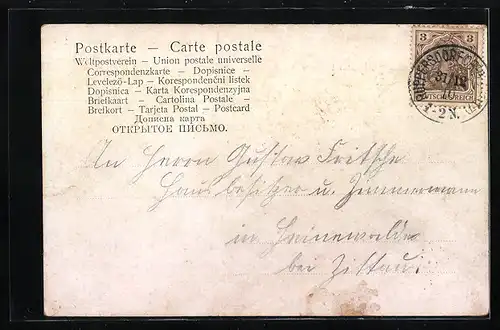 Postkarte – Carte postale
Weltpostverein – Union postale universelle
Correspondenzkarte – Dopisnice –
Levelező-Lap – Korespondenční listek
Dopisnica – Karta Korespondenzyjna
Briefkaart – Cartolina Postale –
Brefkort – Tarjeta Postal – Postcard
Дописна карта
ОТКРЫТОЕ ПИСЬМО.
3 3
31/12
10
7-8N.
An Herrn Gustav Fritsche
Hausbesitzer u. Zimmermann
in Hainewalde
bei Zittau.